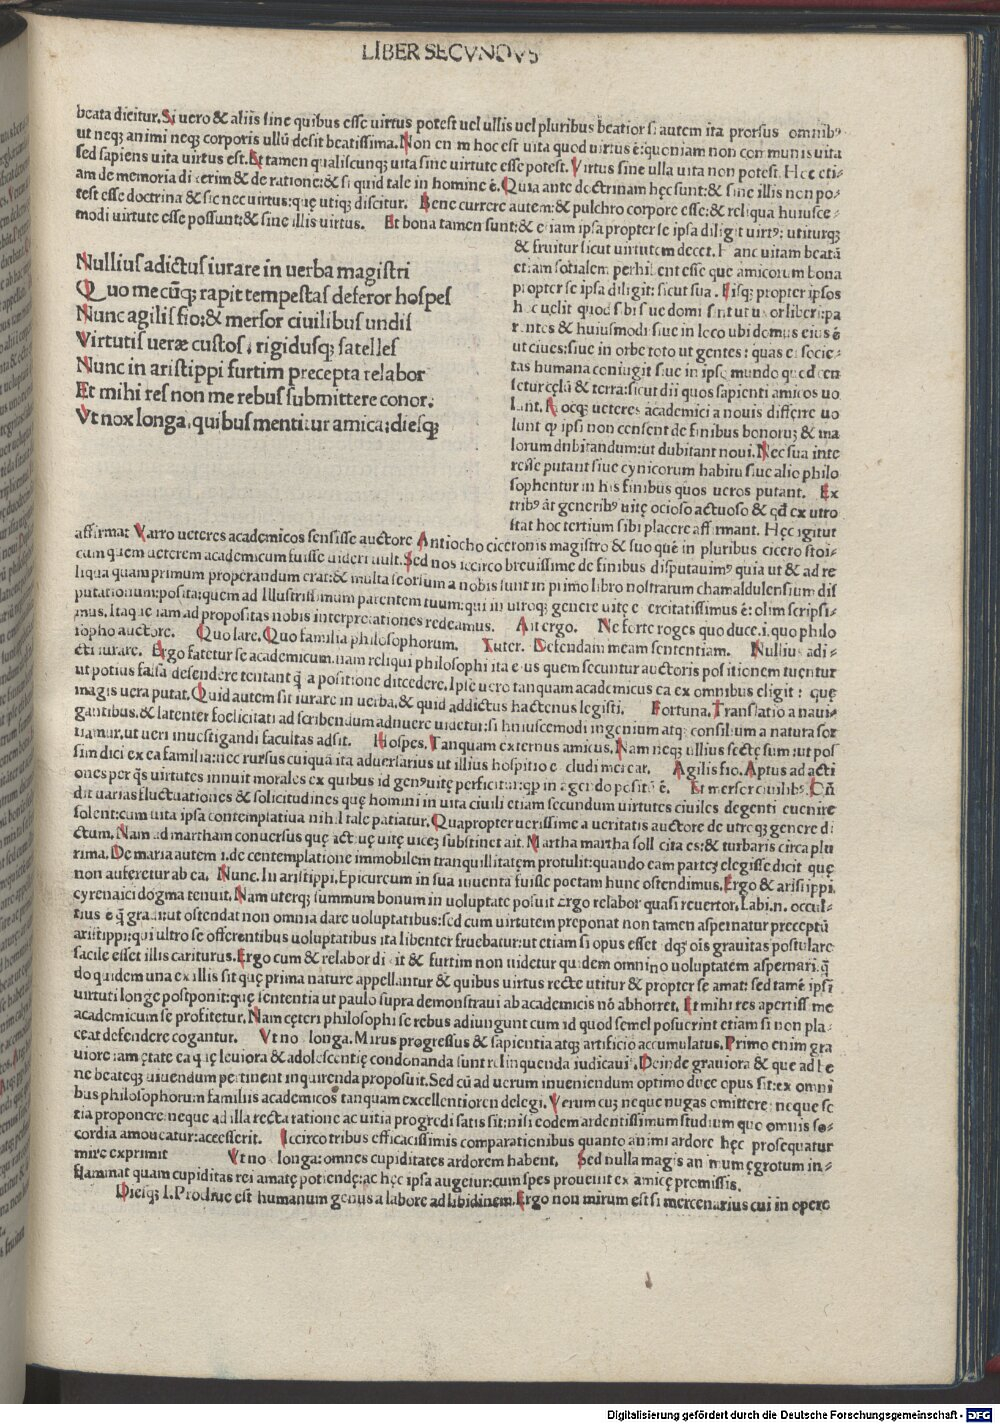 LIBER SECVNDVS
beata dicitur. Si uero & aliis sine quibus esse uirtus potest uel ullis uel pluribus beatior si autem ita prorsus omnibꝰ
ut neqꝫ animi neqꝫ corporis ullū desit beatissima. Non en m hoc est uita quod uirtus ē: quoniam non communis uita
sed sapiens uita uirtus est. Et tamen qualiscunqꝫ uita sine uirtute esse potest. Virtus sine ulla uita non potest. Hoc eti-
am de memoria di erim & de ratione: & si quid tale in homine ē. Quia ante doctrinam hęc sunt: & sine illis non po-
test esse doctrina & sic nec uirtus: quę utiqꝫ discitur. Bene currere autem: & pulchro corpore esse: & reliqua huiusce-
modi uirtute esse possunt: & sine illis uirtus. Et bona tamen sunt: & e iam ipsa propter se ipsa diligit uirtꝰ: utiturqꝫ
& fruitur sicut uirtutem decet. H anc uitam beatā
etiam sotialem perhibent esse que amicorum bona
propter se ipsa diligit: sicut sua. Eisqꝫ propter ipsos
hoc uelit quod sibi siue domi sint ut uxor liberi pa
rentes & huiusmodi siue in loco ubi domus eius ē
ut ciues: siue in orbe toto ut gentes: quas ei socie-
tas humana coniugit siue in ipso mundo qui cen
setur cęlā & terra: sicut dii quos sapienti amicos uo
lunt. Hocqꝫ ueteres academici a nouis differre uo
lunt qp ipsi non censent de finibus bonorū & ma
lorum dubitandum: ut dubitant noui. Nec sua inte
resse putant siue cynicorum habitu siue alio philo
sophentur in his finibus quos ueros putant. Ex
tribꝰ āt generibꝰ uitę ocioso actuoso & qd ex utro
stat hoc tertium sibi placere affirmant. Hęc igitur
Nullius adictus iurare in uerba magistri
Quo me cūqꝫ rapit tempestas deferor hospes
Nunc agilis fio: & mersor ciuilibus undis
Virtutis ueræ custos, rigidusqꝫ satelles
Nunc in aristippi furtim precepta relabor
Et mihi res non me rebus submittere conor.
Vt nox longa, quibus mentitur amica: diesqꝫ
affirmat Varro ueteres academicos sensisse auctore Antiocho ciceronis magistro & suo que in pluribus cicero stoi-
cum quem ueterem academicum fuisse uideri uult. Sed nos iccirco breuissime de finibus disputauimꝰ quia ut & ad re
liqua quam primum properandum erat: & multa seorsum a nobis sunt in primo libro nostrarum chamaldulensium dis
putationum: posita: quem ad Illustrissimum parentem tuum: qui in utroqꝫ genere uitę e ercitatissimus ē: olim scripsi-
mus. Itaque iam ad propositas nobis interpretationes redeamus. Ait ergo. Ne forte roges quo duce .i. quo philo
sopho auctore. Quo lare. Quo familia philosophorum. Tuter. Defendam meam sententiam. Nullius adi-
cti iurare. Ergo fatetur se academicum. nam reliqui philosophi ita eius quem secuntur auctoris positionem tuentur
ut potius falsa defendere tentant q̄ a positione discedere. Ipse uero tanquam academicus ea ex omnibus eligit: quę
magis uera putat. Quid autem sit iurare in uerba, & quid addictus hactenus legisti. Fortuna. Translatio a naui-
gantibus. & latenter foelicitati ad scribendum adnuere uidetur: si huiuscemodi ingenium atqꝫ consilium a natura sor
tiamur, ut ueri inuestigandi facultas adsit. Hospes. Tanquam externus amicus. Nam neqꝫ ullius sectę sum: ut pos
sim dici ex ea familia: nec rursus cuiquā ita aduersarius ut illius hospitio e cludi merear. Agilis fio. Aptus ad acti
ones per qs uirtutes innuit morales ex quibus id genꝰ uitę perficitur: qp in agendo positū ē. Et mersor ciuilibꝰ. Oñ
dit uarias fluctuationes & solicitudines quę homini in uita ciuili etiam secundum uirtutes ciuiles degenti euenire
solent: cum uita ipsa contemplatiua nihil tale patiatur. Quapropter uerissime a ueritatis auctore de utroqꝫ genere di
ctum. Nam ad martham conuersus que actiuę uitę uiceꝫ substinet ait. Martha martha sollicita es: & turbaris circa plu
rima. De maria autem .i. de contemplatione immobilem tranquillitatęm protulit: quando eam parteꝫ elegisse dicit quę
non auferetur ab ea. Nunc. In aristippi. Epicureum in sua iuuenta fuisse poetam hunc ostendimus. Ergo & aristippi.
cyrenaici dogma tenuit. Nam uterqꝫ summum bonum in uoluptate posuit Ergo relabor quasi reuertor. Labi. n. occul-
tius ē q̄ gradi: ut ostendat non omnia dare uoluptatibus: sed cum uirtutem preponat non tamen aspernatur preceptū
aristippi: qui ultro se offerentibus uoluptatibus ita libenter fruebatur: ut etiam si opus esset dqꝫ ois grauitas postulare
facile esset illis cariturus. Ergo cum & relabor di it & furtim non uidetur quidem omnino uoluptatem aspernari: q̄
do quidem una ex illis sit quę prima nature appellantur & quibus uirtus recte utitur & propter se amat: sed tamē ipsi
uirtuti longe postponit: quę sententia ut paulo supra demonstraui ab academicis nō abhorret. Et mihi res apertissime
academicum se profitetur. Nam cęteri philosophi se rebus adiungunt cum id quod semel posuerint etiam si non pla-
ceat defendere cogantur. Vt nox longa. Mirus progressus & sapientia atqꝫ artificio accumulatus. Primo enim gra
uiore iam ętate ea quę leuiora & adolescentię condonanda sunt relinquenda iudicauit. Deinde grauiora & que ad be
ne beateqꝫ uiuendum pertinent inquirenda proposuit. Sed cū ad uerum inueniendum optimo duce opus sit: ex omni
bus philosophorum familiis academicos tanquam excellentiorem delegi. Verum cuꝫ neque nugas omittere: neque se
ria proponere: neque ad illa recta ratione ac uitia progredi satis sit: nisi eodem ardentissimum studium que omnis so-
cordia amoueatur: accesserit. Iccirco tribus efficacissimis comparationibus quanto animi ardore hęc prosequatur
mire exprimit Vt nox longa: omnes cupiditates ardorem habent. Sed nulla magis animum ęgrotum in-
flammat quam cupiditas rei amatę potiendę: ac hęc ipsa augetur: cum spes prouenit ex amicę promissis.
Diesqꝫ l. Procliue est humanum genus a labore ad libidinem. Ergo non mirum est si mercenarius cui in opere
Digitalisierung gefördert durch die Deutsche Forschungsgemeinschaft - DFG